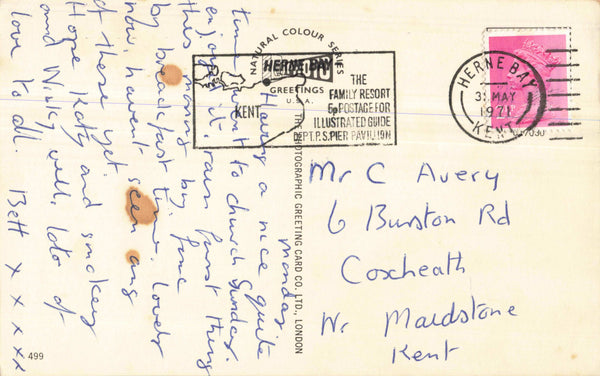 Monday
Having a nice quite
time went to church Sunday.
enjoyed it, rain first thing
this morning but fine
by breakfast time. Lovely
now. havent seen any
of these yet.
Hope Katy and smokey
and Winky well, lots of
love to all. Bett x x x x x
499
NATURAL COLOUR SERIES
GREETINGS
U.S.A.
THE PHOTOGRAPHIC GREETING CARD CO. LTD., LONDON
HERNE BAY
KENT
THE
FAMILY RESORT
5p POSTAGE FOR
ILLUSTRATED GUIDE
DEPT. P.S. PIER PAVILION
HERNE BAY
MAY
1971
KENT
Mr C Avery
6 Burston Rd
Coxheath
Nr. Maidstone
Kent